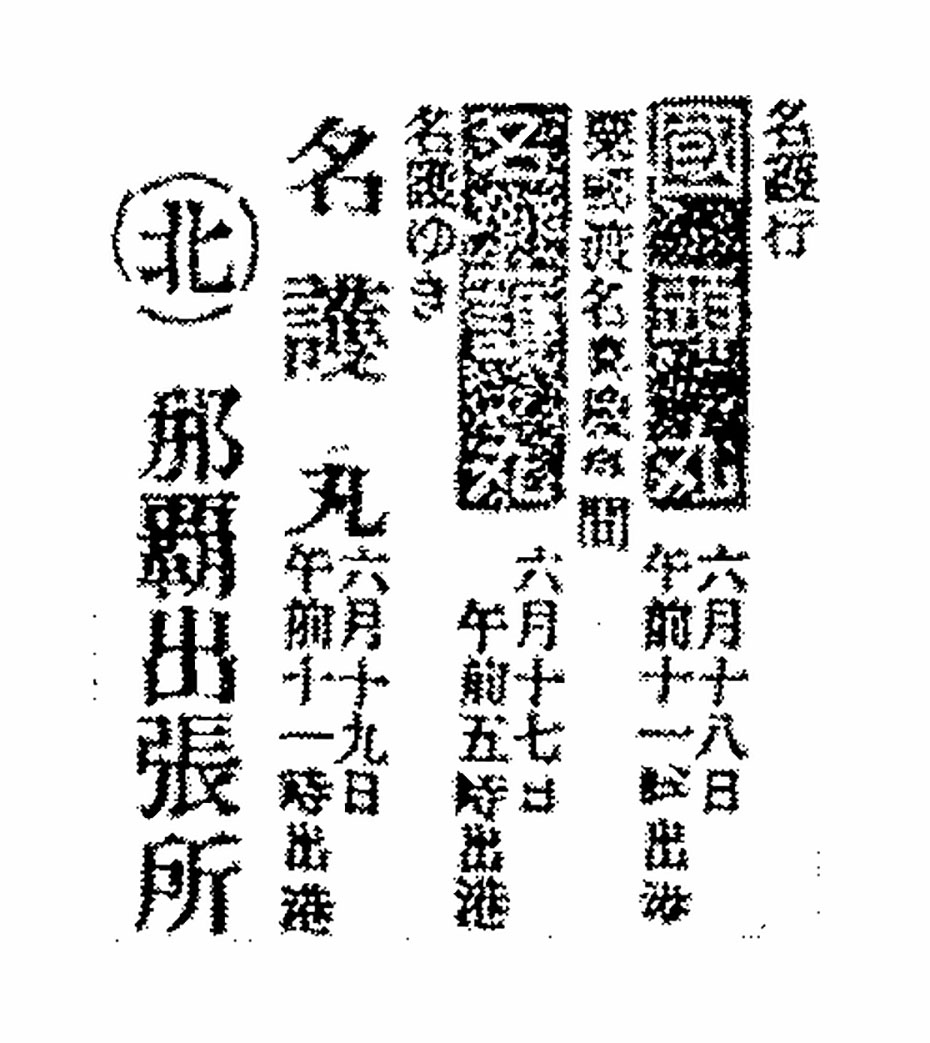 名護行
六月十八日
午前十一時出港
粟國渡名喜慶良間
六月十七日
午前五時出港
名護ゆき
名護丸
六月十九日
午前十一時出港
北 那覇出張所